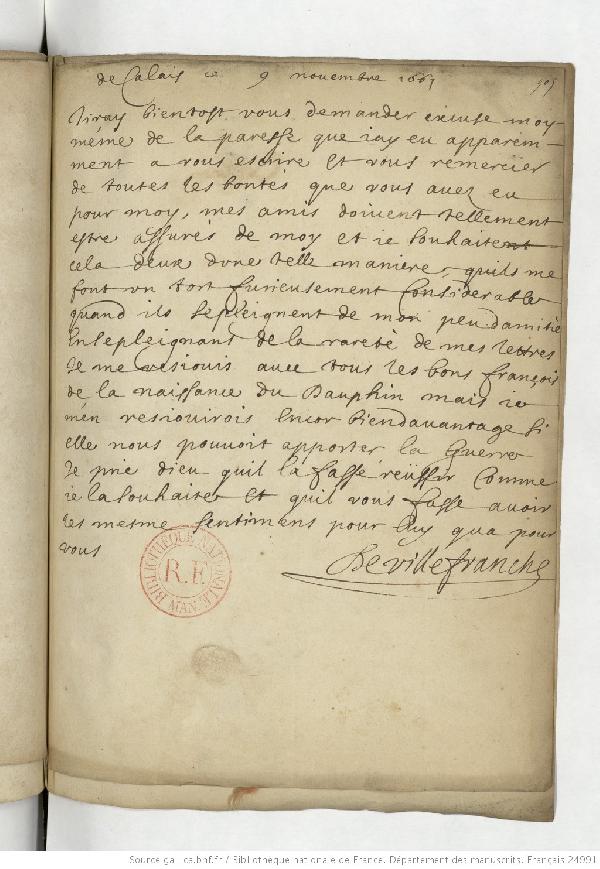 de Calais ce 9 novembre 1661
Jiray bientost vous demander excuse moy
méme de la paresse que iay eu apparem-
ment a vous escrire et vous remercier
de toutes les bontés que vous avez eu
pour moy, mes amis doivent tellement
estre assures de moy et ie souhaite
cela deux dune telle maniere, quils me
font un tort furieusement considerable
quand ils sepleignent de mon peu damitie
en sepleignant de la rareté de mes lettres
Je me resiouis avec tous les bons françois
de la naissance du Dauphin mais ie
men resiouirois encor biendavantage si
elle nous pouvoit apporter la guerre
Je prie dieu quil la fasse reüssir comme
ie la souhaite et quil vous fasse avoir
les mesme sentimens pour luy qua pour
vous
Deville franche
BIBLIOTHEQUE NATIONALE
R.F.
MAN.
Source gallica.bnf.fr / Bibliothèque nationale de France. Département des manuscrits. Français 24991